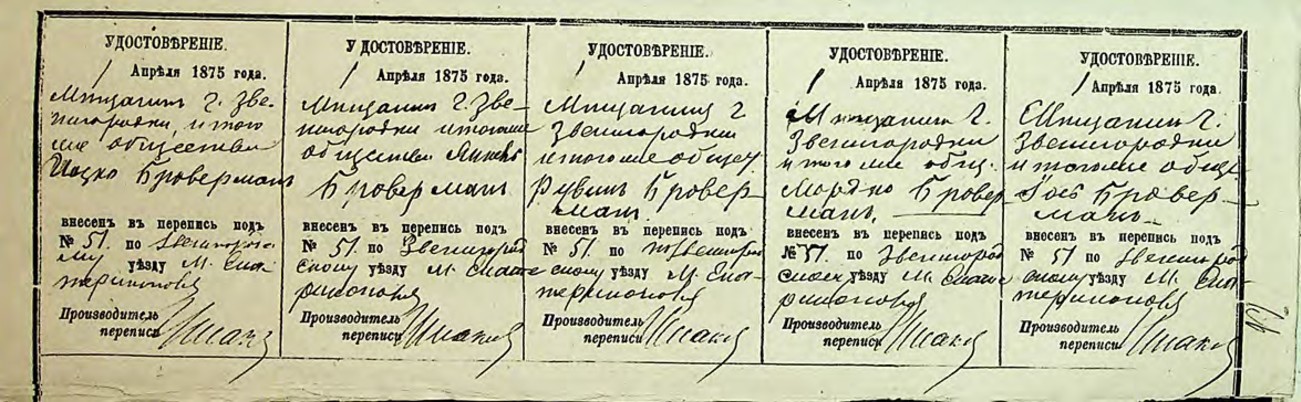 УДОСТОВѢРЕНІЕ.
1 Апрѣля 1875 года.
Мѣщанинъ г. Зве-
нигородки, и того
же общества
Ицко Броверманъ
внесенъ въ перепись подъ
№ 51. по Звенигородско-
му уѣзду М. Ека-
теринополя
Производитель
переписи
УДОСТОВѢРЕНІЕ.
1 Апрѣля 1875 года.
Мѣщанинъ г. Зве-
нигородки и того же
общества
Броверманъ
внесенъ въ перепись подъ
№ 51. по Звенигород
скому уѣзду М. Екате
ринополя
Производитель
переписи
УДОСТОВѢРЕНІЕ.
1 Апрѣля 1875 года.
Мѣщанинъ г
Звенигородки
и того же общес
Рувинъ Бровер-
манъ.
внесенъ въ перепись подъ
№ 51. по Звенигород
скому уѣзду М. Ека-
теринополя
Производитель
переписи
УДОСТОВѢРЕНІЕ.
1 Апрѣля 1875 года.
Мѣщанинъ г.
Звенигородки
и того же общ.
Мордко Бровер
манъ.
внесенъ въ перепись подъ
№ 51. по Звенигород
скому уѣзду М. Екате
ринополя
Производитель
переписи
УДОСТОВѢРЕНІЕ.
1 Апрѣля 1875 года.
Мѣщанинъ г.
Звенигородки
и того же обще
Бровер-
манъ
внесенъ въ перепись подъ
№ 51 по Звенигород
скому уѣзду М. Ека
теринополя
Производитель
переписи